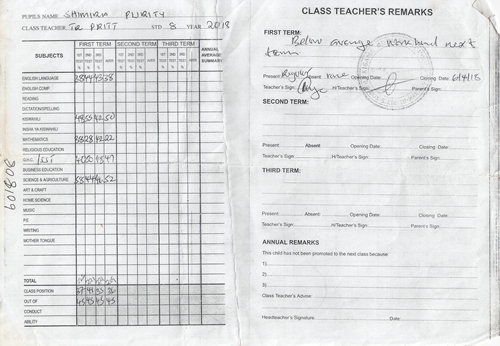 PUPILS NAME SHIMIRA PURITY
CLASS TEACHER TR PRITT STD 8 YEAR 2018
SUBJECTS FIRST TERM SECOND TERM THIRD TERM ANNUAL AVERAGE SUMMARY
1ST TEST % 2ND TEST % 3RD TEST % AVER. 1ST TEST % 2ND TEST % 3RD TEST % AVER. 1ST TEST % 2ND TEST % 3RD TEST % AVER.
ENGLISH LANGUAGE 38
ENGLISH COMP.
READING
DICTATION/SPELLING
KISWAHILI 48 55 42 50
INSHA YA KISWAHILI
MATHEMATICS 22
RELIGIOUS EDUCATION
G.H.C. /SST 47
BUSINESS EDUCATION
SCIENCE & AGRICULTURE 52
ART & CRAFT
HOME SCIENCE
MUSIC
P.E
WRITING
MOTHER TONGUE
TOTAL
CLASS POSITION
OUT OF 45 45 45 45
CONDUCT
ABILITY
601808
CLASS TEACHER'S REMARKS
FIRST TERM: Below average. Work hard next
term
Present Regular Absent none Opening Date: Closing Date:
Teacher's Sign: H/Teacher's Sign: Parent's Sign:
SECOND TERM:
Present: Absent: Opening Date: Closing Date:
Teacher's Sign: H/Teacher's Sign: Parent's Sign:
THIRD TERM:
Present: Absent: Opening Date: Closing Date:
Teacher's Sign: H/Teacher's Sign: Parent's Sign:
ANNUAL REMARKS
This child has not been promoted to the next class because:
1)
2)
3)
Class Teacher's Advise:
Headteacher's Signature: Date: